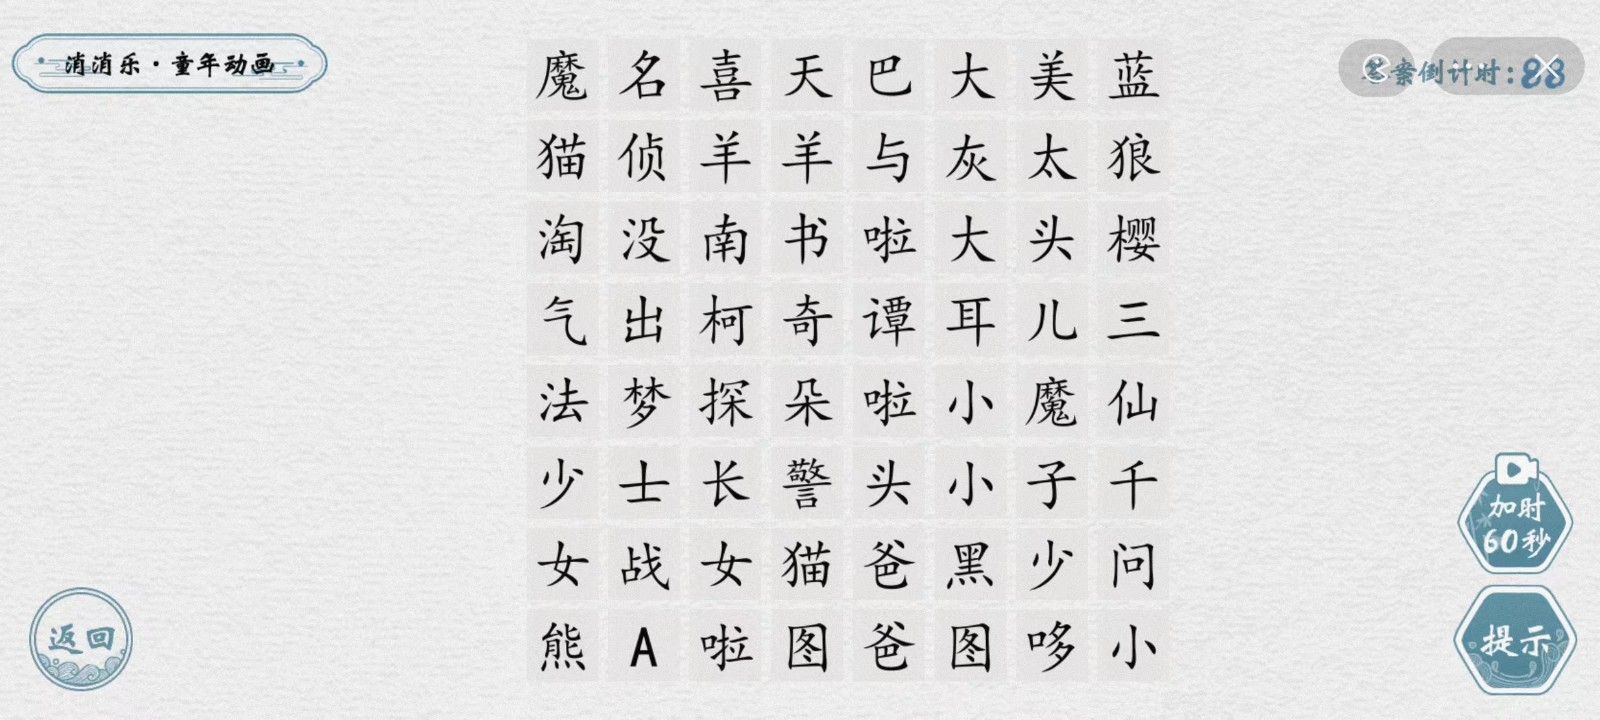 消消乐·童年动画
案倒计时:88
魔名喜天巴大美蓝
猫侦羊羊与灰太狼
淘没南书啦大头樱
气出柯奇谭耳儿三
法梦探朵啦小魔仙
少士长警头小子千
女战女猫爸黑少问
熊A啦图爸图哆小
加时
60秒
返回
提示